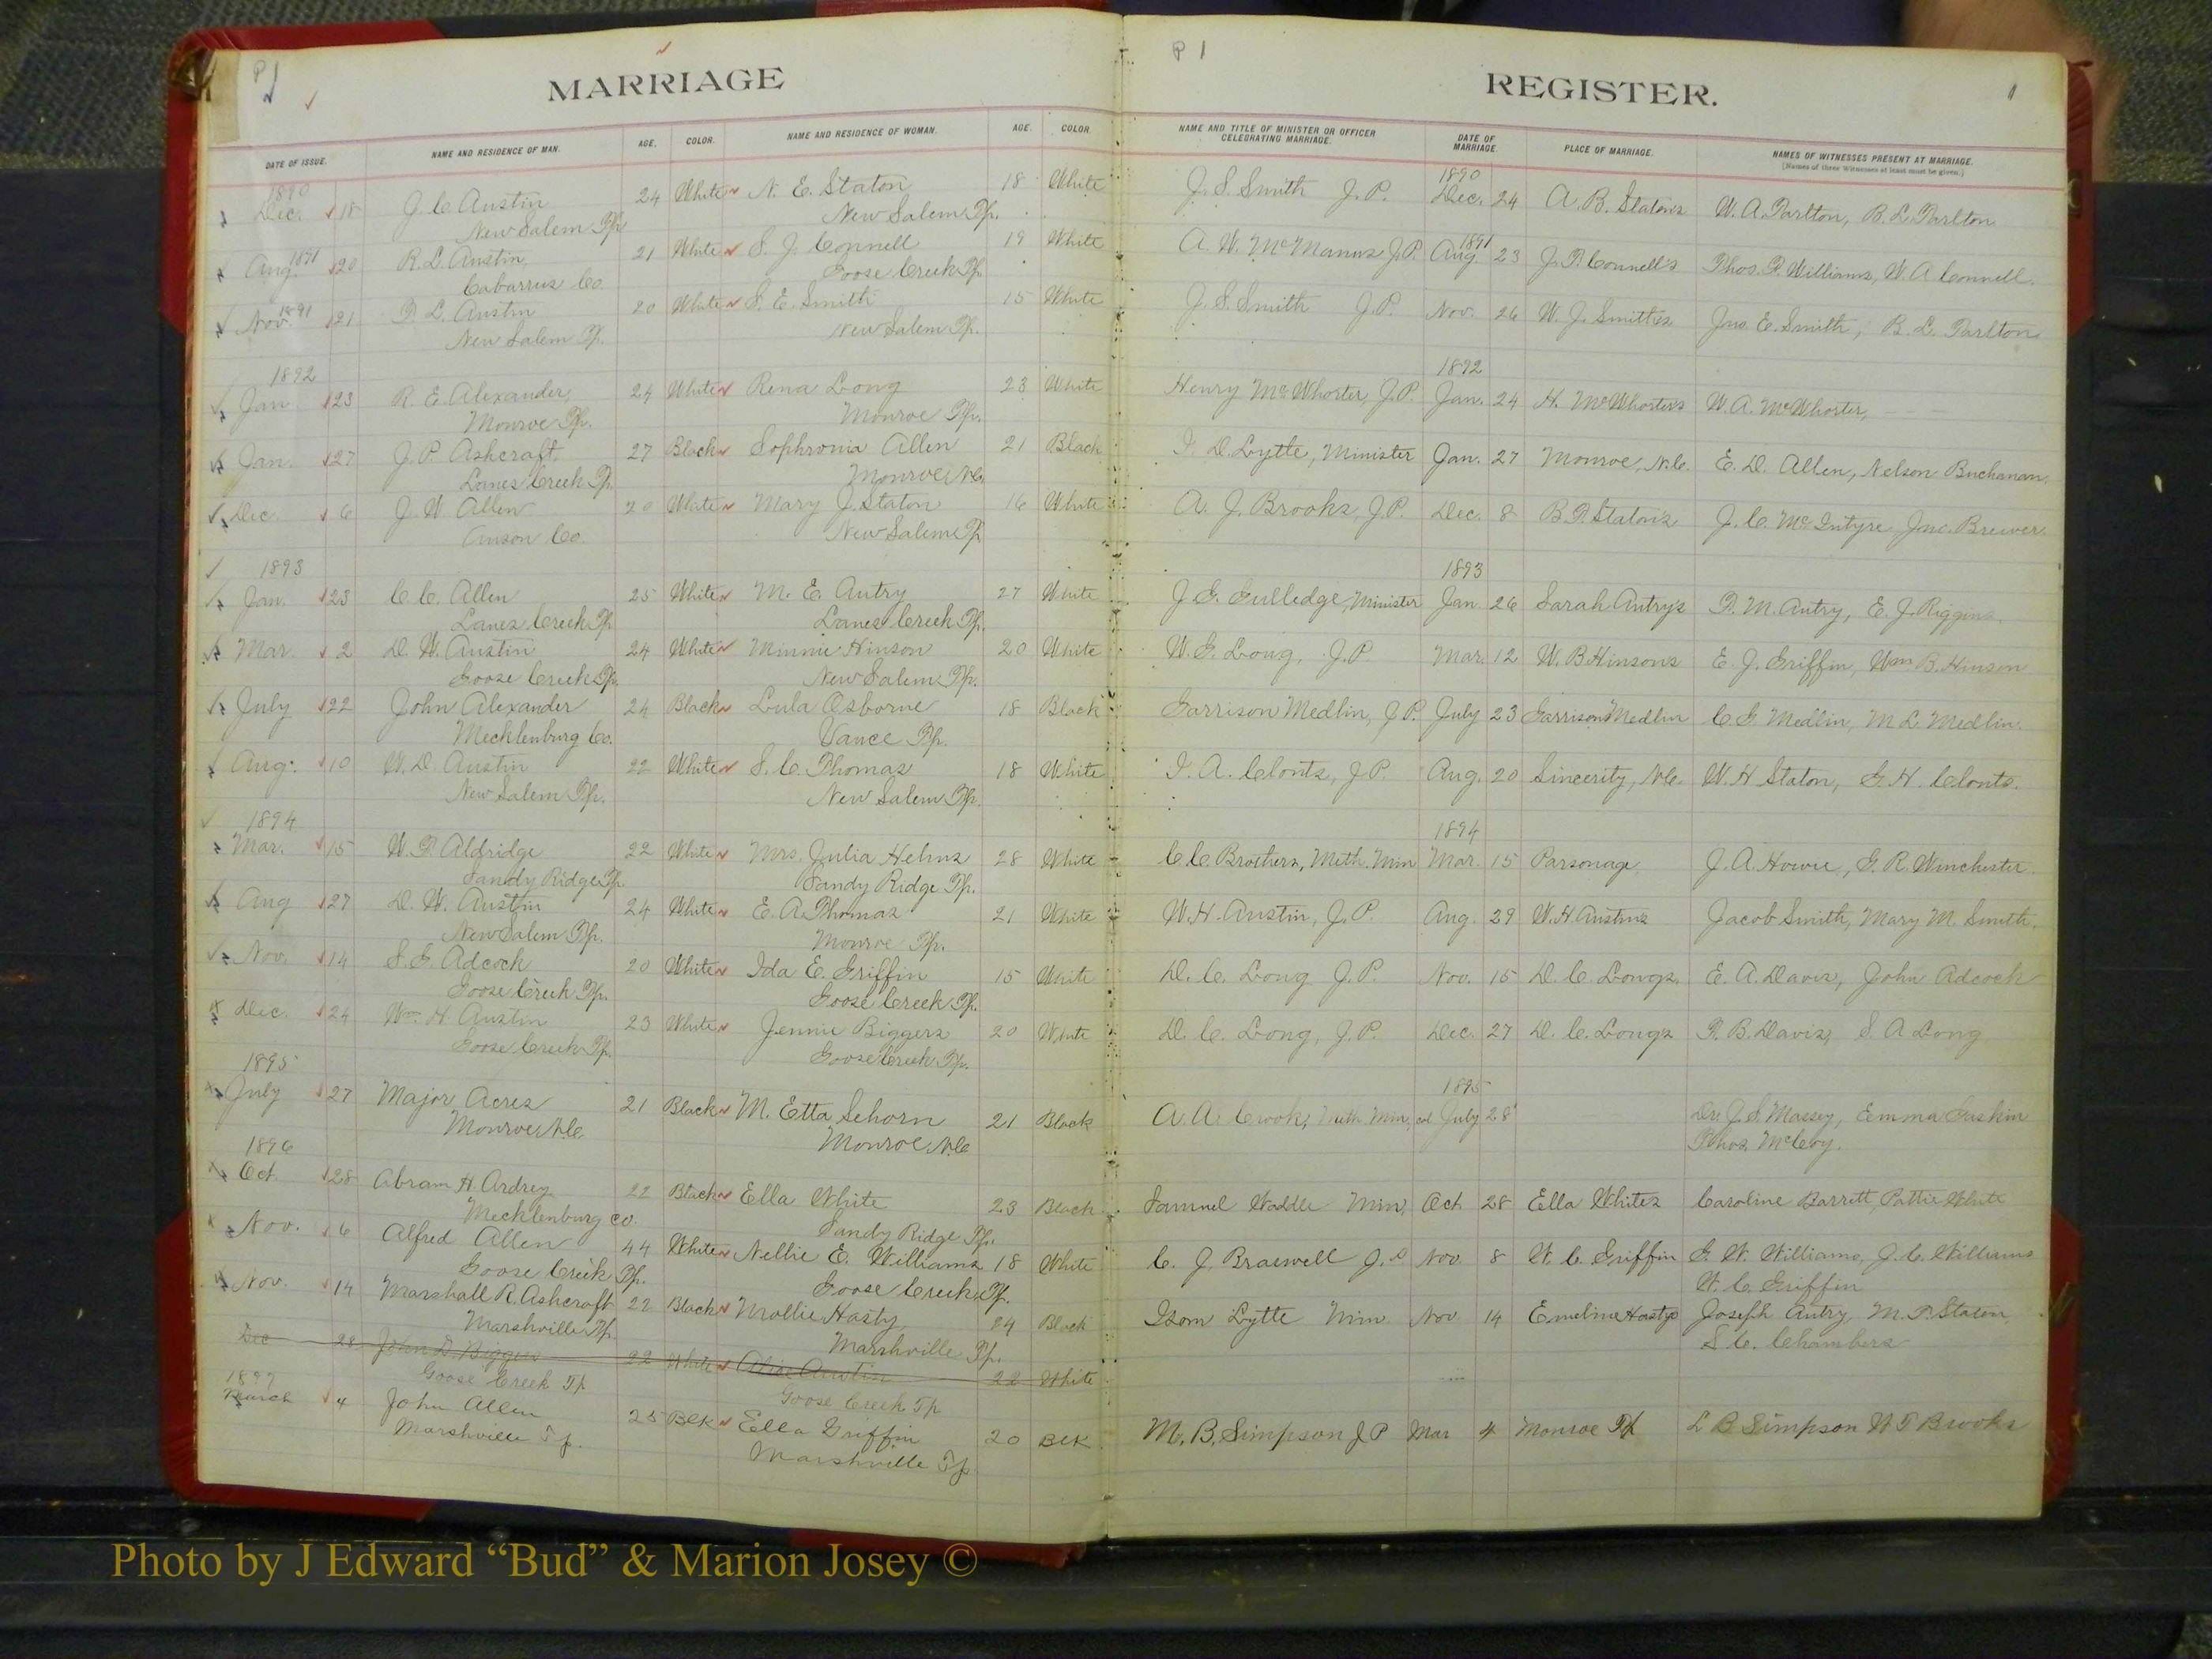 P 1
MARRIAGE
P 1
REGISTER.
1
DATE OF ISSUE. NAME AND RESIDENCE OF MAN. AGE. COLOR. NAME AND RESIDENCE OF WOMAN. AGE. COLOR. NAME AND TITLE OF MINISTER OR OFFICER CELEBRATING MARRIAGE. DATE OF MARRIAGE. PLACE OF MARRIAGE. NAMES OF WITNESSES PRESENT AT MARRIAGE.
[Names of three Witnesses at least must be given.]
1890 1890
Dec. 18 J. C. Austin 24 White N. E. Staton 18 White J. S. Smith J.P. Dec. 24 A. B. Staton's W. A. Tarlton, B. L. Tarlton
New Salem Tp. New Salem Tp.
1891 1891
Aug. 20 R. L. Austin, 21 White S. J. Connell 19 White A. W. McManus J.P. Aug. 23 J. P. Connell's Thos. P. Williams, W. A. Connell.
Cabarrus Co. Goose Creek Tp.
1891
Nov. 21 P. L. Austin 20 White S. E. Smith 15 White J. S. Smith J.P. Nov. 26 W. J. Smith's Jno. E. Smith, B. L. Tarlton
New Salem Tp. New Salem Tp.
1892 1892
Jan 23 R. E. Alexander, 24 White Rena Long 23 White Henry McWhorter, J.P. Jan. 24 H. McWhorter's W. A. McWhorter,
Monroe Tp. Monroe Tp.
Jan. 27 J. P. Ashcraft 27 Black Sophronia Allen 21 Black I. D. Lytle, Minister Jan. 27 Monroe, N.C. E. D. Allen, Nelson Buchanan.
Lanes Creek Tp. Monroe N.C.
Dec. 6 J. W. Allen 20 White Mary J. Staton 16 White A. J. Brooks, J.P. Dec. 8 B. P. Staton's J. C. McIntyre Jno. Brewer
Anson Co. New Salem Tp
1893 1893
Jan. 23 C. C. Allen 25 White M. E. Autry 27 White J. G. Gulledge, Minister Jan. 26 Sarah Autry's P. M. Autry, E. J. Riggins.
Lanes Creek Tp Lanes Creek Tp.
Mar. 2 D. W. Austin 24 White Minnie Hinson 20 White W. G. Long, J.P Mar. 12 W. B. Hinson's E. J. Griffin, Wm B. Hinson
Goose Creek Tp. New Salem Tp.
July 22 John Alexander 24 Black Lula Osborne 18 Black Garrison Medlin, J.P. July 23 Garrison Medlin C. G. Medlin, M. L. Medlin.
Mecklenburg Co. Vance Tp.
Aug. 10 W. D. Austin 22 White S. C. Thomas 18 White I. A. Clontz, J.P. Aug. 20 Sincerity, N.C. W. H Staton, G. H. Clontz.
New Salem Tp. New Salem Tp.
1894 1894
Mar. 15 W. P. Aldridge 22 White Mrs. Julia Helms 28 White C. C. Brothers, Meth. Min Mar. 15 Parsonage, J. A. Howie, G. R. Winchester.
Sandy Ridge Tp. Sandy Ridge Tp.
Aug 27 D. W. Austin 24 White E. A. Thomas 21 White W. H. Austin, J.P. Aug. 29 W. H. Austins Jacob Smith, Mary M. Smith.
New Salem Tp. Monroe Tp.
Nov. 14 S. G. Adcock 20 White Ida E. Griffin 15 White D. C. Long J.P. Nov. 15 D. C. Longs, E. A. Davis, John Adcock
Goose Creek Tp. Goose Creek Tp.
Dec. 24 Wm. H. Austin 23 White Jennie Biggers 20 White D. C. Long, J.P. Dec. 27 D. C. Longs P. B. Davis, S. A Long
Goose Creek Tp. Goose Creek Tp.
1895 1895
July 27 Major Acres 21 Black M. Etta Sehorn 21 Black A. A. Crook, Meth Min, col July 28 Dr. J. S. Massey, Emma Guskin
Monroe N.C. Monroe N.C. Thos. McCoy.
1896
Oct 28 Abram H. Ardrey 22 Black Ella White 23 Black Samuel Waddle Min, Oct 28 Ella Whites Caroline Barrett, Pattie White
Mecklenburg Co. Sandy Ridge Tp.
Nov. 6 Alfred Allen 44 White Nellie E. Williams 18 White C. J. Braswell J.P Nov 8 W. C. Griffin G. W. Williams, J. C. Williams
Goose Creek Tp. Goose Creek Tp. W. C. Griffin
Nov. 14 Marshall R. Ashcraft 22 Black Mollie Hasty 24 Black Isom Lytle Min. Nov 14 Emeline Hastys Joseph Autry, M. P. Staton,
Marshville Tp. Marshville Tp. S. C. Chambers
Dec 28 John D. Biggers 22 White Alice Austin 22 White
Goose Creek Tp Goose Creek Tp
1897
March 4 John Allen 25 Blk Ella Griffin 20 Blk M. B. Simpson J P Mar 4 Monroe Tp L B Simpson W T Brooks
Marshville Tp. Marshville Tp
Photo by J Edward “Bud” & Marion Josey ©